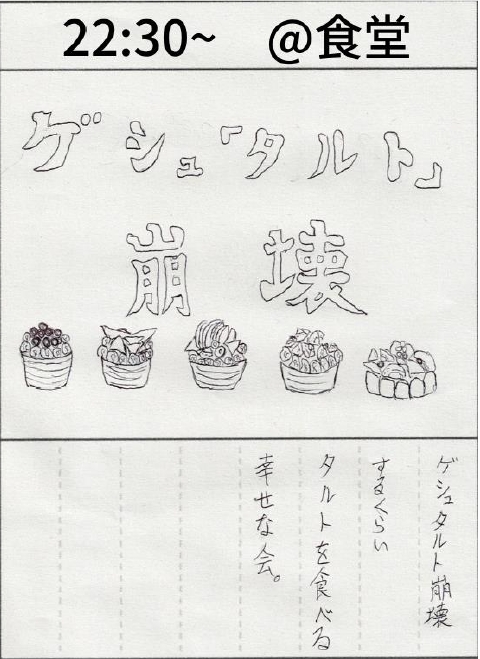 22:30~ @食堂
ゲシュ「タルト」
崩壊
ゲシュタルト崩壊
するくらい
タルトを食べる
幸せな会。